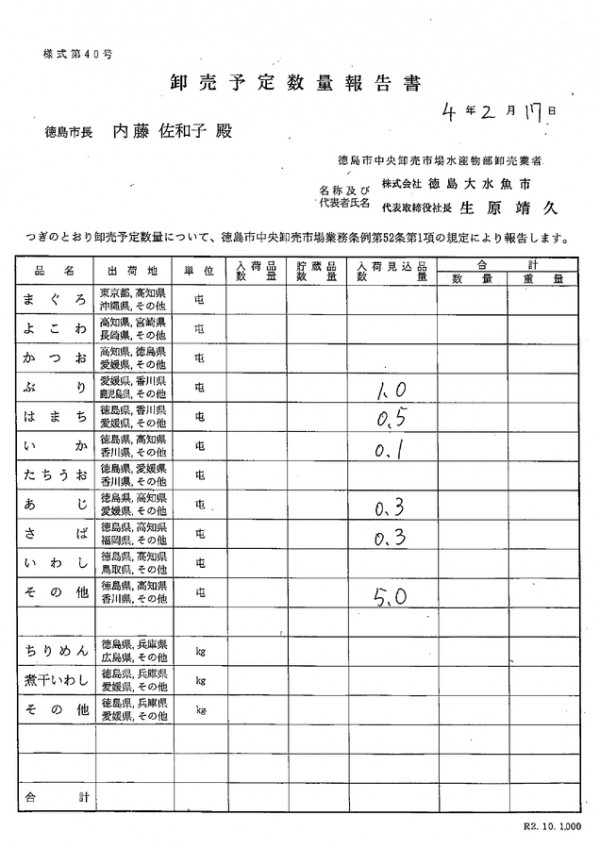 様式第40号
卸売予定数量報告書
4年2月17日
徳島市長 内藤 佐和子 殿
徳島市中央卸売市場水産物部卸売業者
名称及び 株式会社 徳島大水魚市
代表者氏名 代表取締役社長 生原靖久
つぎのとおり卸売予定数量について、徳島市中央卸売市場業務条例第52条第1項の規定により報告します。
品名 出荷地 単位 入荷品数量 貯蔵品数量 入荷見込品数量 合計
数量 重量
まぐろ 東京都, 高知県 屯
沖縄県, その他
よこわ 高知県, 宮崎県 屯
長崎県, その他
かつお 高知県, 徳島県 屯
愛媛県, その他
ぶり 愛媛県, 香川県 屯 1.0
鹿児島県, その他
はまち 徳島県, 香川県 屯 0.5
愛媛県, その他
いか 徳島県, 高知県 屯 0.1
香川県, その他
たちうお 徳島県, 愛媛県 屯
香川県, その他
あじ 徳島県, 高知県 屯 0.3
愛媛県, その他
さば 徳島県, 高知県 屯 0.3
福岡県, その他
いわし 徳島県, 高知県 屯
鳥取県, その他
その他 徳島県, 高知県 屯 5.0
香川県, その他
ちりめん 徳島県, 兵庫県 kg
広島県, その他
煮干いわし 徳島県, 兵庫県 kg
愛媛県, その他
その他 徳島県, 兵庫県 kg
愛媛県, その他
合計
R2. 10. 1,000